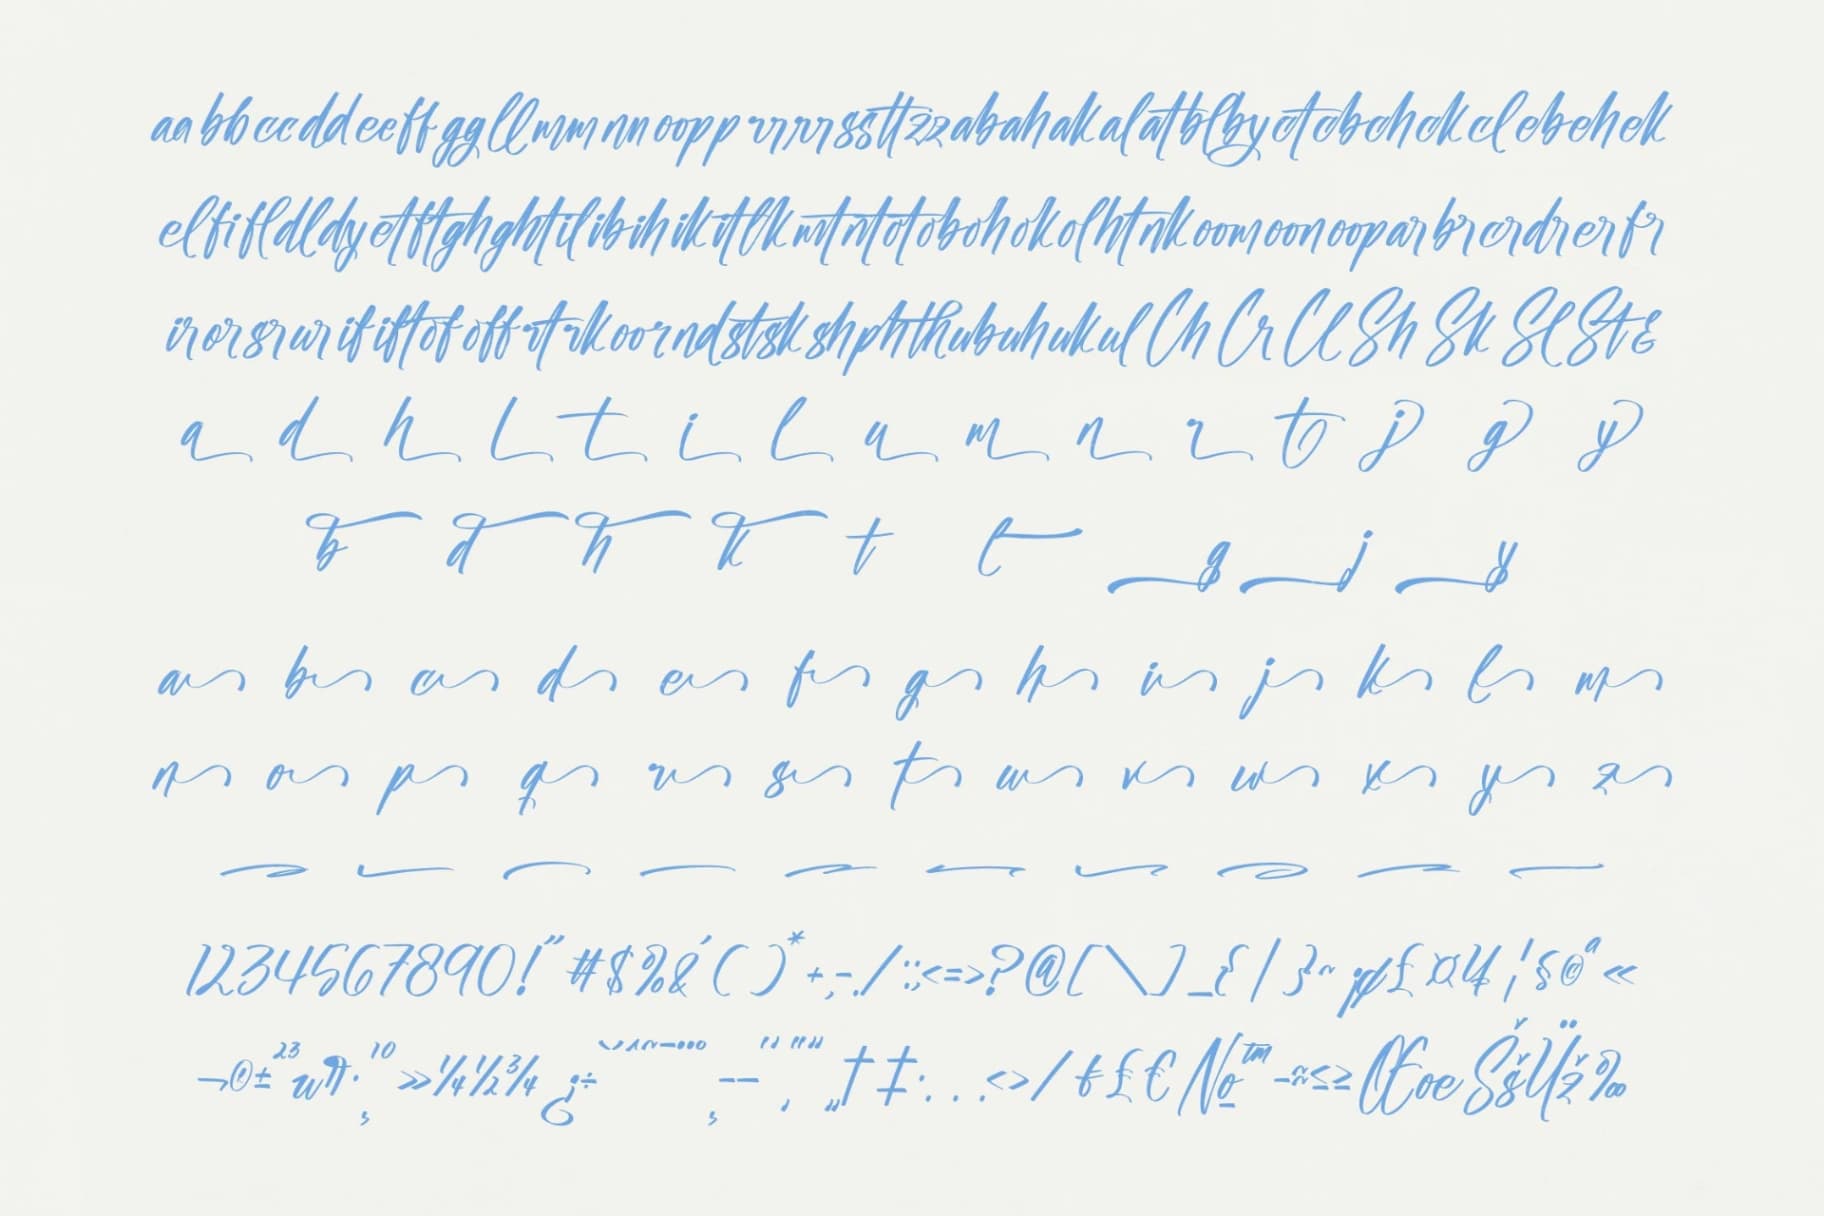 aa bb cc dd ee ff gg ll mm nn oo pp rr rr ss tt zz ab ah ak al at bl by ct cb ch ck cl eb eh ek
el fi fl dl dy et ft gh ght il ib ih ik it lk mt nt ot ob oh ok ol ht nk oom oon oop ar br cr dr er fr
ir or sr ur if ift of off rt rk oor nd st sk sh ph th ub uh uk ul Ch Cr Cl Sh Sk Sl St &
a d h l t i l u m n r t j g y
b d h k t t g j y
a b c d e f g h i j k l m
n o p q r s t u v w x y z
1234567890!" #$%&'()*+,-./:;<=>?@[\]_{|}~¡¢£¤¥¦§©ª«
¬®±²³µ¶·¸¹º»¼½¾¿÷ †‡•...<>/₣£€№™−≈≤≥ŒœŠšŸž‰